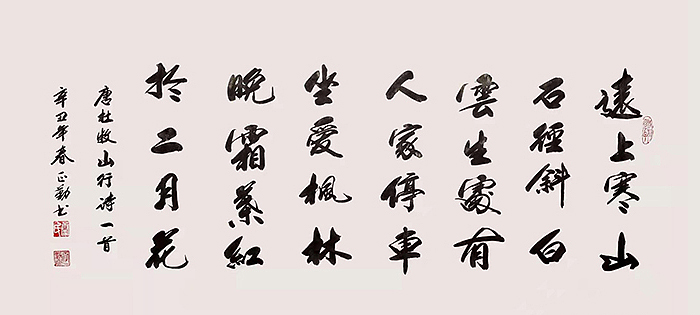 遠上寒山
石徑斜白
雲生處有
人家停車
坐愛楓林
晚霜葉紅
於二月花
唐杜牧山行诗一首
辛丑年春正勤书